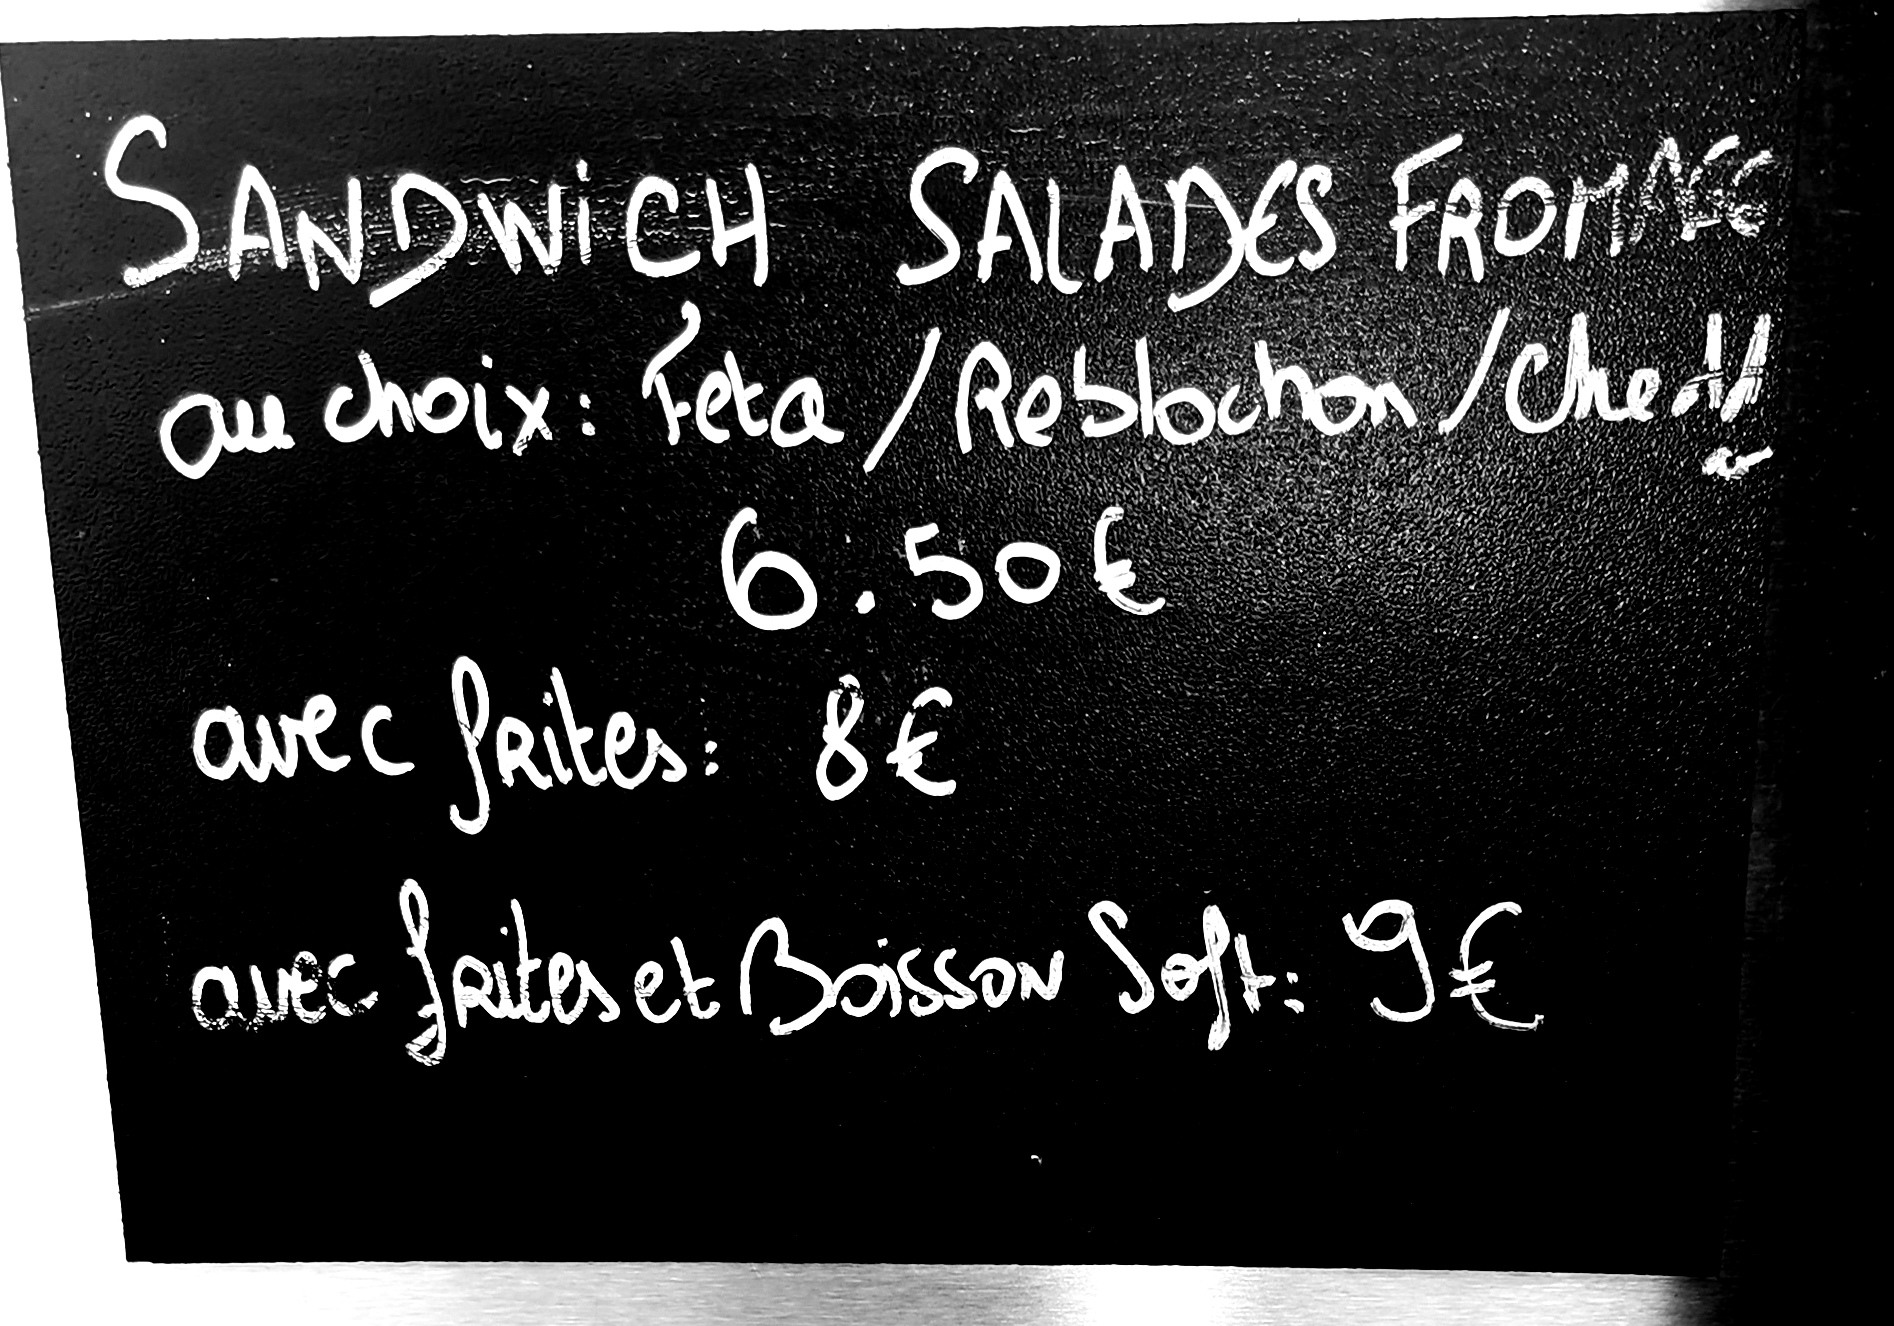 SANDWiCH SALADES FROMAGE
au choix: Feta / Reblochon / Chedd
ar
6.50€
avec frites: 8€
avec frites et Boisson Soft: 9€